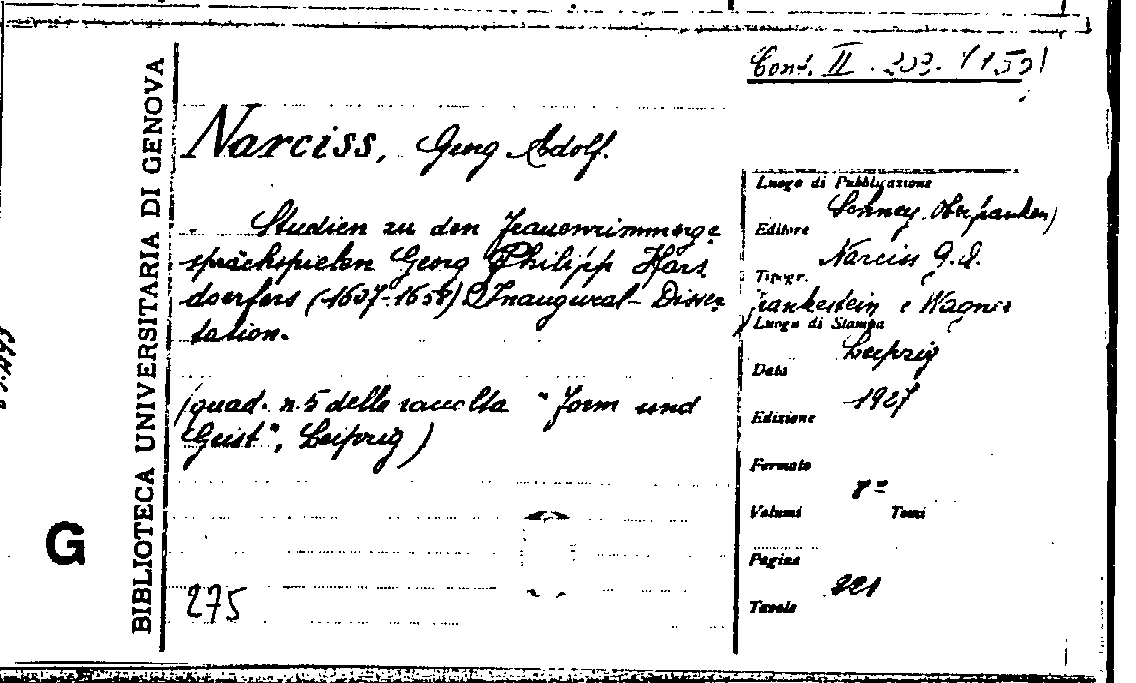 BIBLIOTECA UNIVERSITARIA DI GENOVA
G
Conf. II. 203. (159)
Narciss, Georg Adolf.
Studien zu den Frauenzimmerge-
sprächspielen Georg Philipp Hars
doerfers (1607-1658) Inaugural-Disser
tation.
(quad. n. 5 della raccolta "Form und
Geist", Leipzig)
275
Luogo di Pubblicazione
(Oberfranken)
Editore
Narciss G. A.
Tipogr.
Frankestein e Wagner
Luogo di Stampa
Leipzig
Data
1927
Edizione
Formato
8º
Volumi Tomi
Pagine
221
Tavole